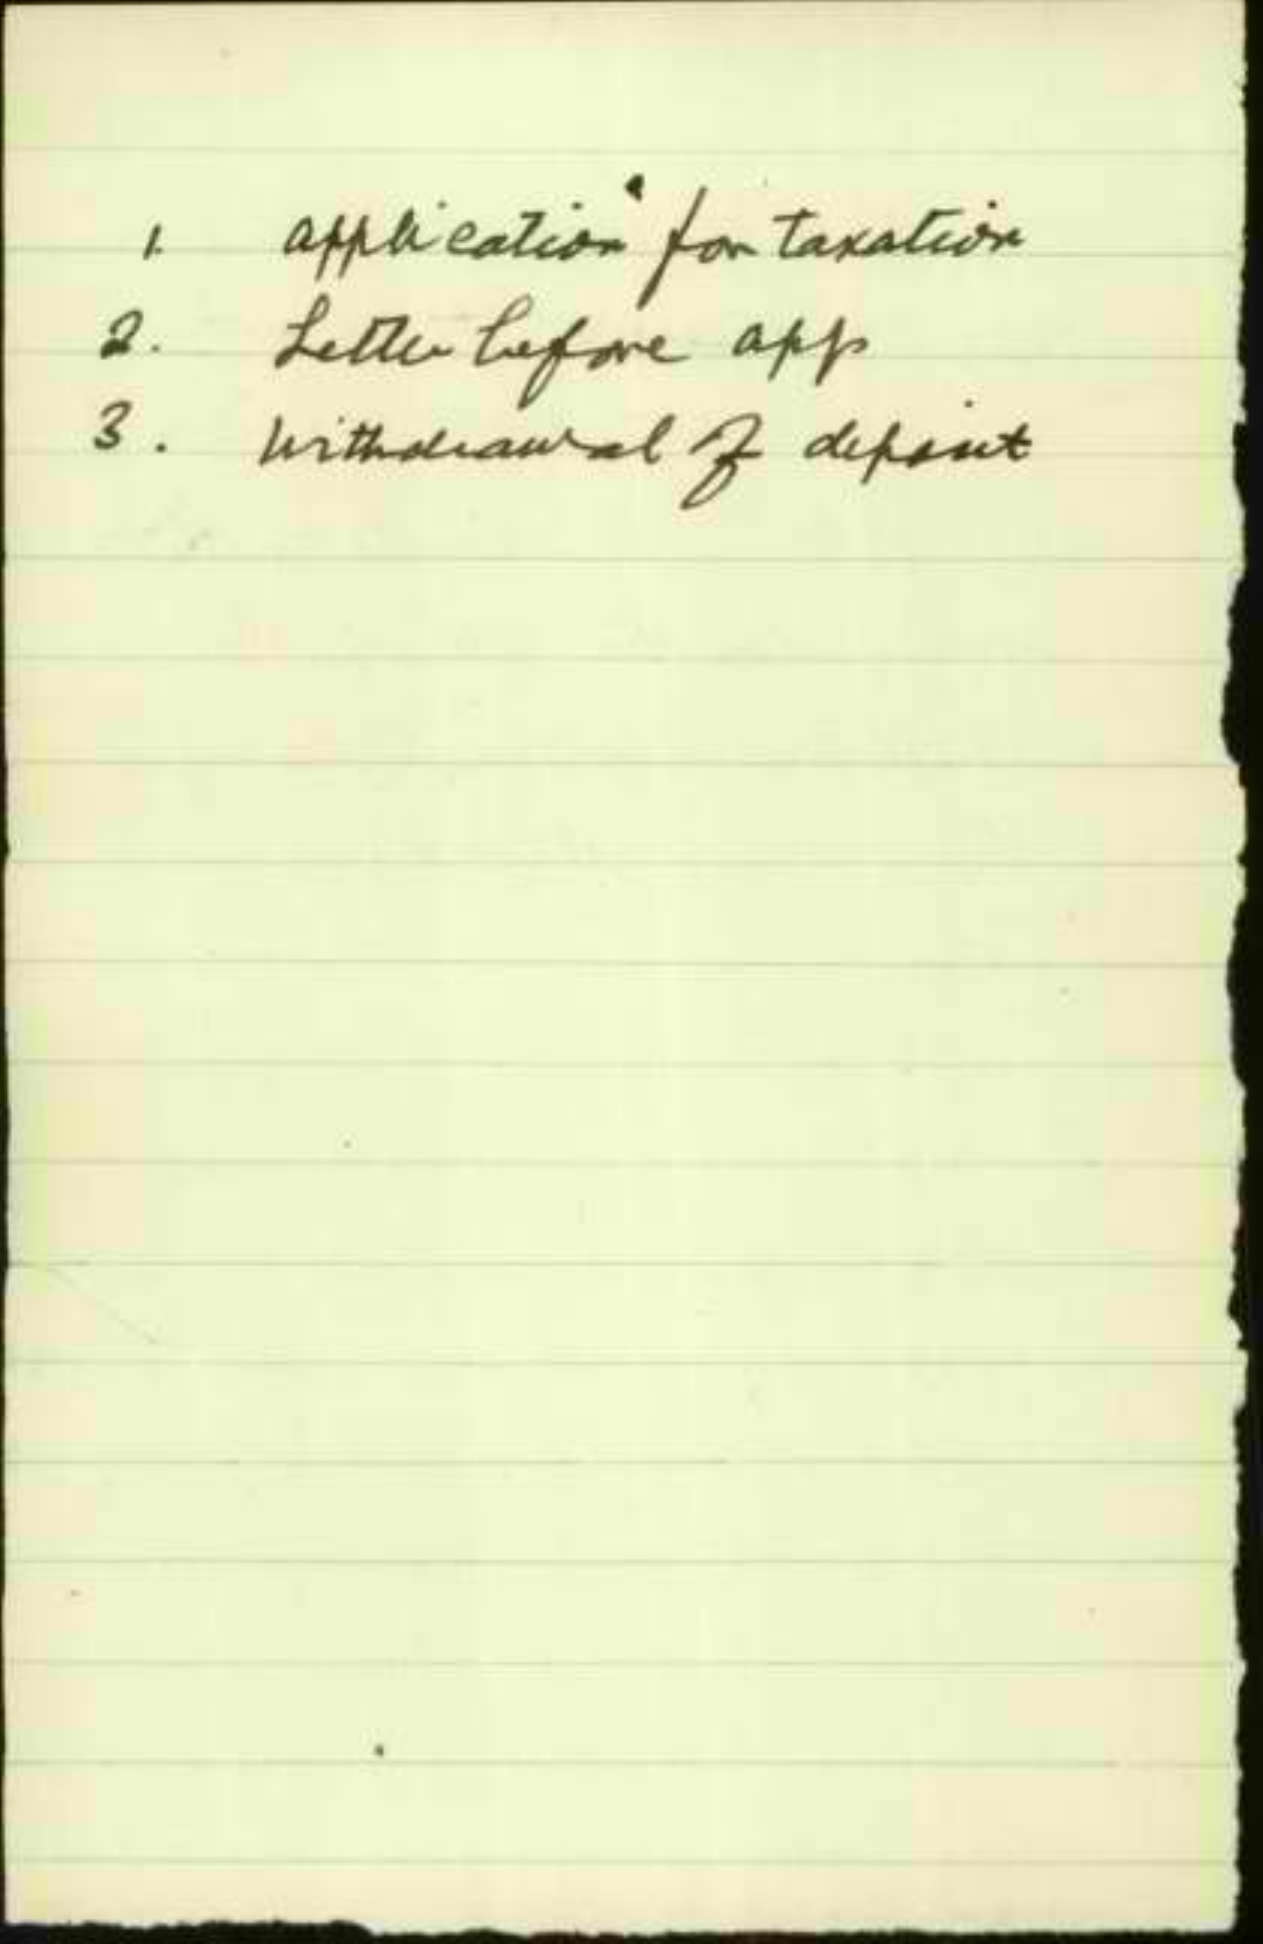 1. application for taxation
2. Letter before app
3. Withdrawal of deposit